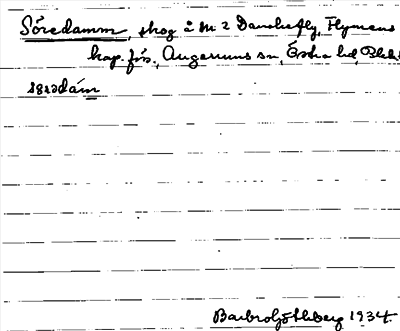 Söredamm, skog å № 2 Danskefly, Flymens
kap. förs., Augerums sn, Östra hd, Blek.
Barbro Göthberg 1934.